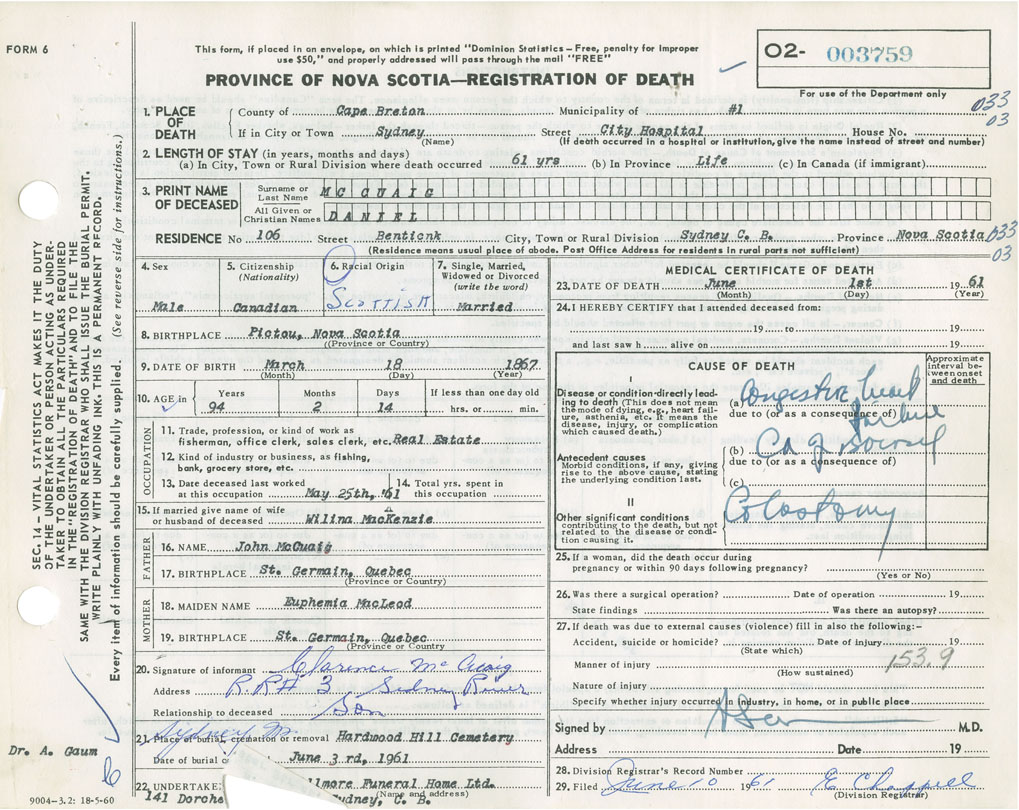 FORM 6
This form, if placed in an envelope, on which is printed "Dominion Statistics – Free, penalty for improper
use $50," and properly addressed will pass through the mail "FREE"
PROVINCE OF NOVA SCOTIA—REGISTRATION OF DEATH
O2- 003759
For use of the Department only
033
03
1. PLACE OF DEATH
County of Cape Breton Municipality of #1
If in City or Town Sydney Street City Hospital House No.
(Name) (If death occurred in a hospital or institution, give the name instead of street and number)
2. LENGTH OF STAY (in years, months and days)
(a) In City, Town or Rural Division where death occurred 61 yrs (b) In Province Life (c) In Canada (if immigrant)
3. PRINT NAME OF DECEASED
Surname or Last Name MC CUAIG
All Given or Christian Names DANIEL
RESIDENCE No 106 Street Bentionk City, Town or Rural Division Sydney C. B. Province Nova Scotia
033
03
(Residence means usual place of abode. Post Office Address for residents in rural parts not sufficient)
4. Sex
Male
5. Citizenship
(Nationality)
Canadian
6. Racial Origin
SCOTTISH
7. Single, Married, Widowed or Divorced
(write the word)
Married
8. BIRTHPLACE Pictou, Nova Scotia
(Province or Country)
9. DATE OF BIRTH March 18 1867
(Month) (Day) (Year)
10. AGE in Years Months Days If less than one day old
94 2 14 hrs. or min.
OCCUPATION
11. Trade, profession, or kind of work as
fisherman, office clerk, sales clerk, etc. Real Estate
12. Kind of industry or business, as fishing,
bank, grocery store, etc.
13. Date deceased last worked
at this occupation May 25th, '61
14. Total yrs. spent in
this occupation
15. If married give name of wife
or husband of deceased Wilina MacKenzie
FATHER
16. NAME John McCuaig
17. BIRTHPLACE St. Germain, Quebec
(Province or Country)
MOTHER
18. MAIDEN NAME Euphemia MacLeod
19. BIRTHPLACE St. Germain, Quebec
(Province or Country)
20. Signature of informant Clarence McCuaig
Address R.R# 3, Sidney River
Relationship to deceased Son
21. Place of burial, cremation or removal Hardwood Hill Cemetery
Date of burial June 3rd, 1961
22. UNDERTAKE: llmore Funeral Home Ltd.
(Name and address)
141 Dorche ydney, C. B.
MEDICAL CERTIFICATE OF DEATH
23. DATE OF DEATH June 1st 19 61
(Month) (Day) (Year)
24. I HEREBY CERTIFY that I attended deceased from:
19 to 19
and last saw h alive on 19
CAUSE OF DEATH
Approximate interval between onset and death
I
Disease or condition directly leading to death (This does not mean the mode of dying, e.g., heart failure, asthenia, etc. It means the disease, injury, or complication which caused death.)
(a) Congestive heart failure
due to (or as a consequence of)
(b) Ca of bowel
due to (or as a consequence of)
(c)
Antecedent causes
Morbid conditions, if any, giving rise to the above cause, stating the underlying condition last.
II
Other significant conditions contributing to the death, but not related to the disease or condition causing it.
Colostomy
25. If a woman, did the death occur during
pregnancy or within 90 days following pregnancy?
(Yes or No)
26. Was there a surgical operation? Date of operation 19
State findings Was there an autopsy?
27. If death was due to external causes (violence) fill in also the following:-
Accident, suicide or homicide? Date of injury 19
(State which)
153.9
Manner of injury
(How sustained)
Nature of injury
Specify whether injury occurred in industry, in home, or in public place
Signed by M.D.
Address Date 19
28. Division Registrar's Record Number
29. Filed June 10 1961 Chappell
(Division Registrar)
SEC. 14 – VITAL STATISTICS ACT MAKES IT THE DUTY
OF THE UNDERTAKER OR PERSON ACTING AS UNDER-
TAKER TO OBTAIN ALL THE PARTICULARS REQUIRED
IN THE "REGISTRATION OF DEATH" AND TO FILE THE
SAME WITH THE DIVISION REGISTRAR WHO SHALL ISSUE THE BURIAL PERMIT.
WRITE PLAINLY WITH UNFADING INK. THIS IS A PERMANENT RECORD.
Every item of information should be carefully supplied. (See reverse side for instructions.)
Dr. A. Gaum
9004-3.2: 18-5-60